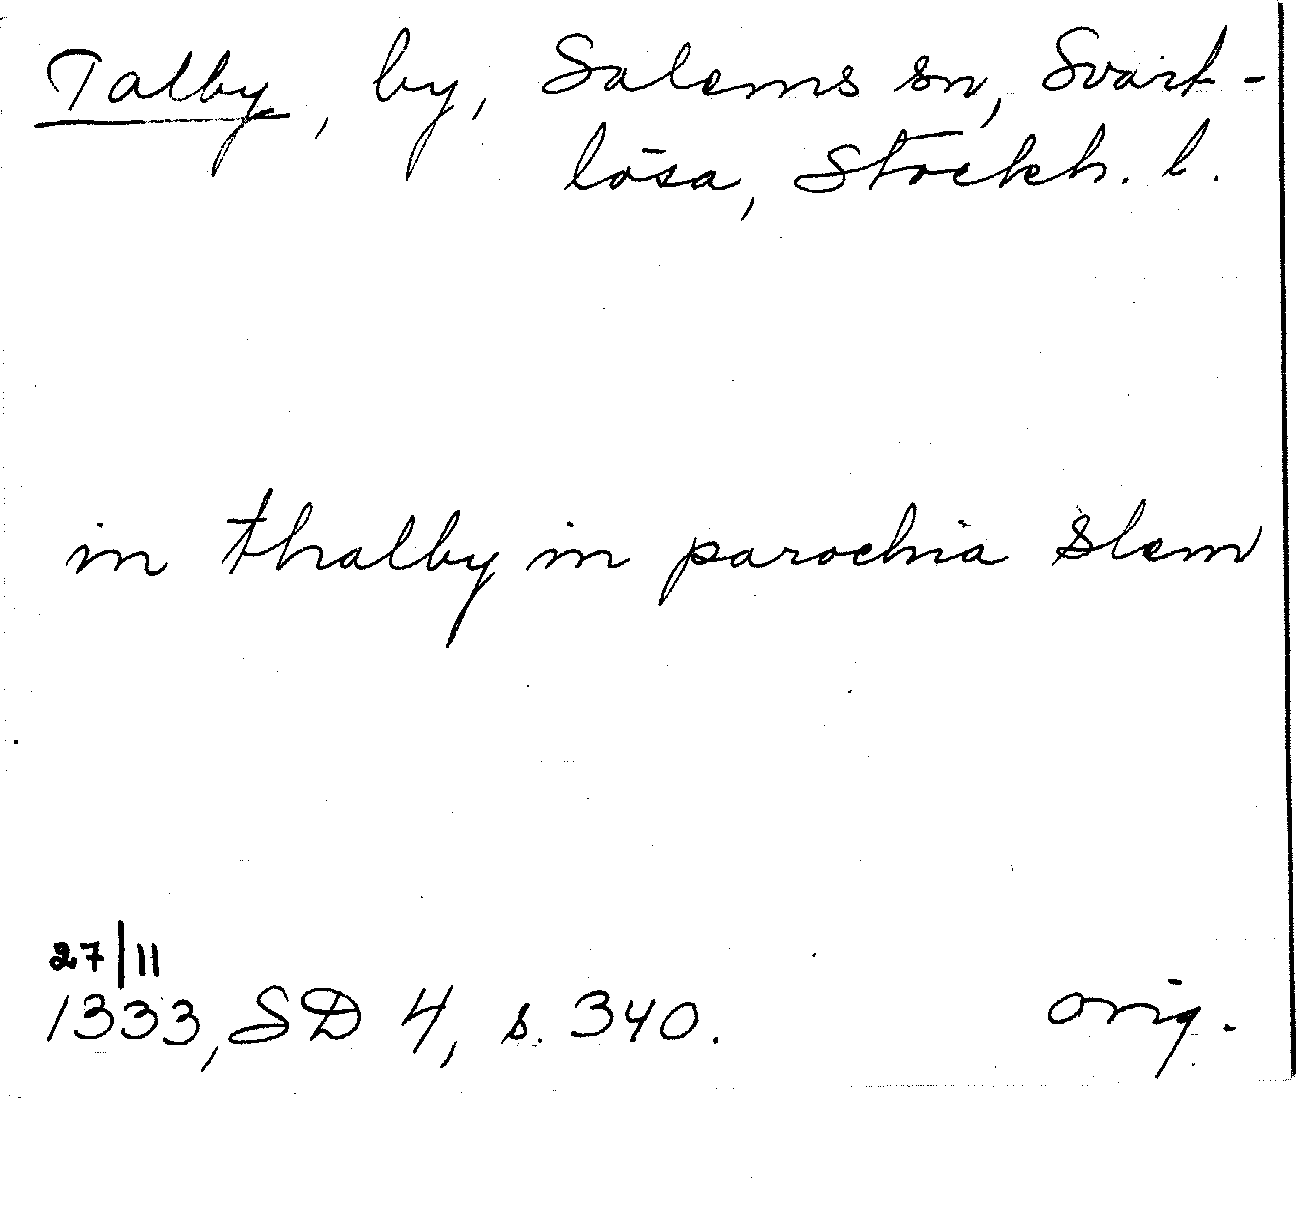 Talby, by, Salems sn, Svart-
lösa, Stockh. l.
in thalby in parochia Slem
27/11
1333, SD 4, s. 340. orig.